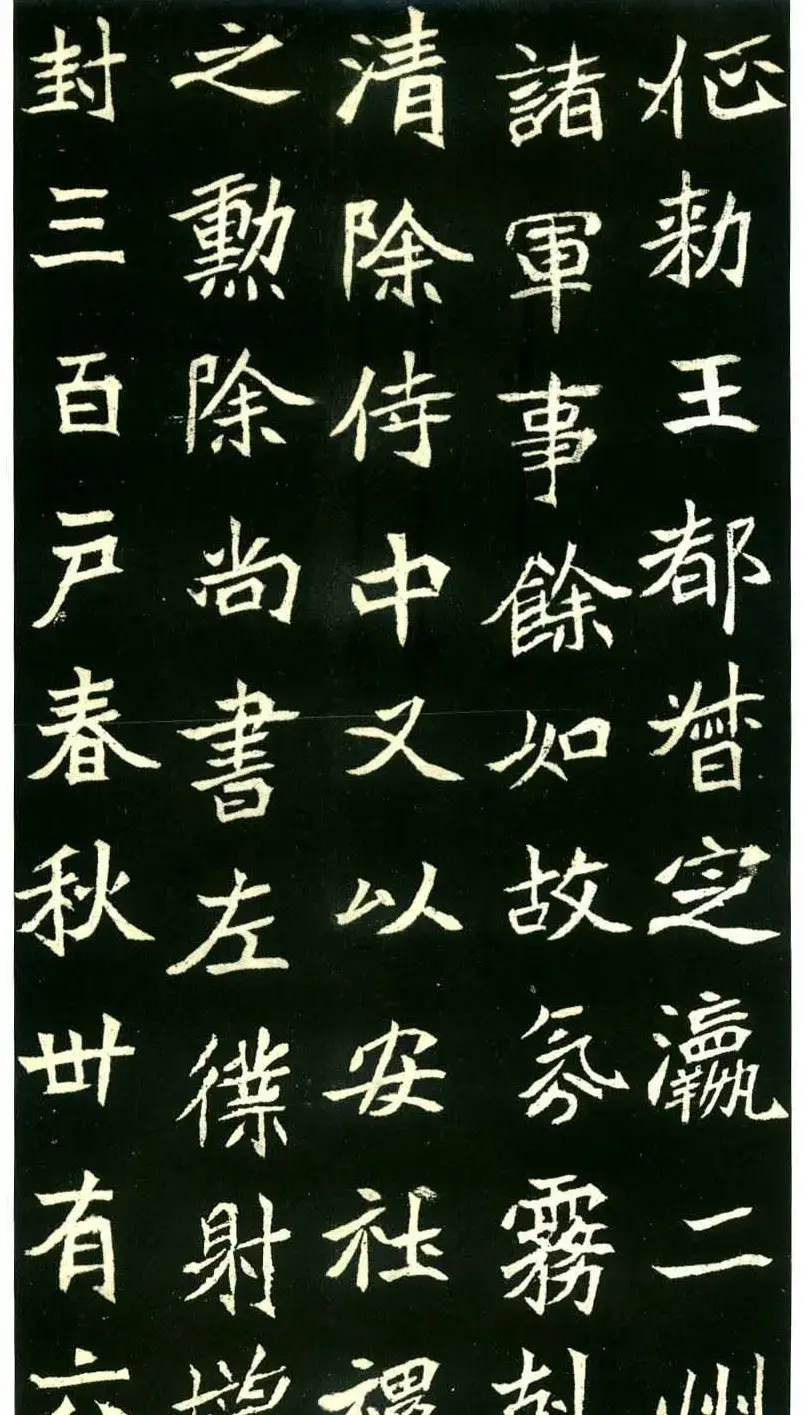 征勑王都督定瀛二州
諸軍事餘如故氛霧剋
清除侍中又以安社稷
之勳除尚書左僕射增
封三百户春秋丗有六